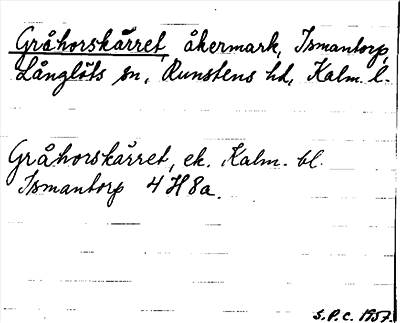 Gråhorskärret, åkermark, Ismantorp,
Långlöts sn, Runstens hd, Kalm. l.
Gråhorskärret, ek. Kalm. bl.
Ismantorp 4 H 8a.
S.P.C. 1957.